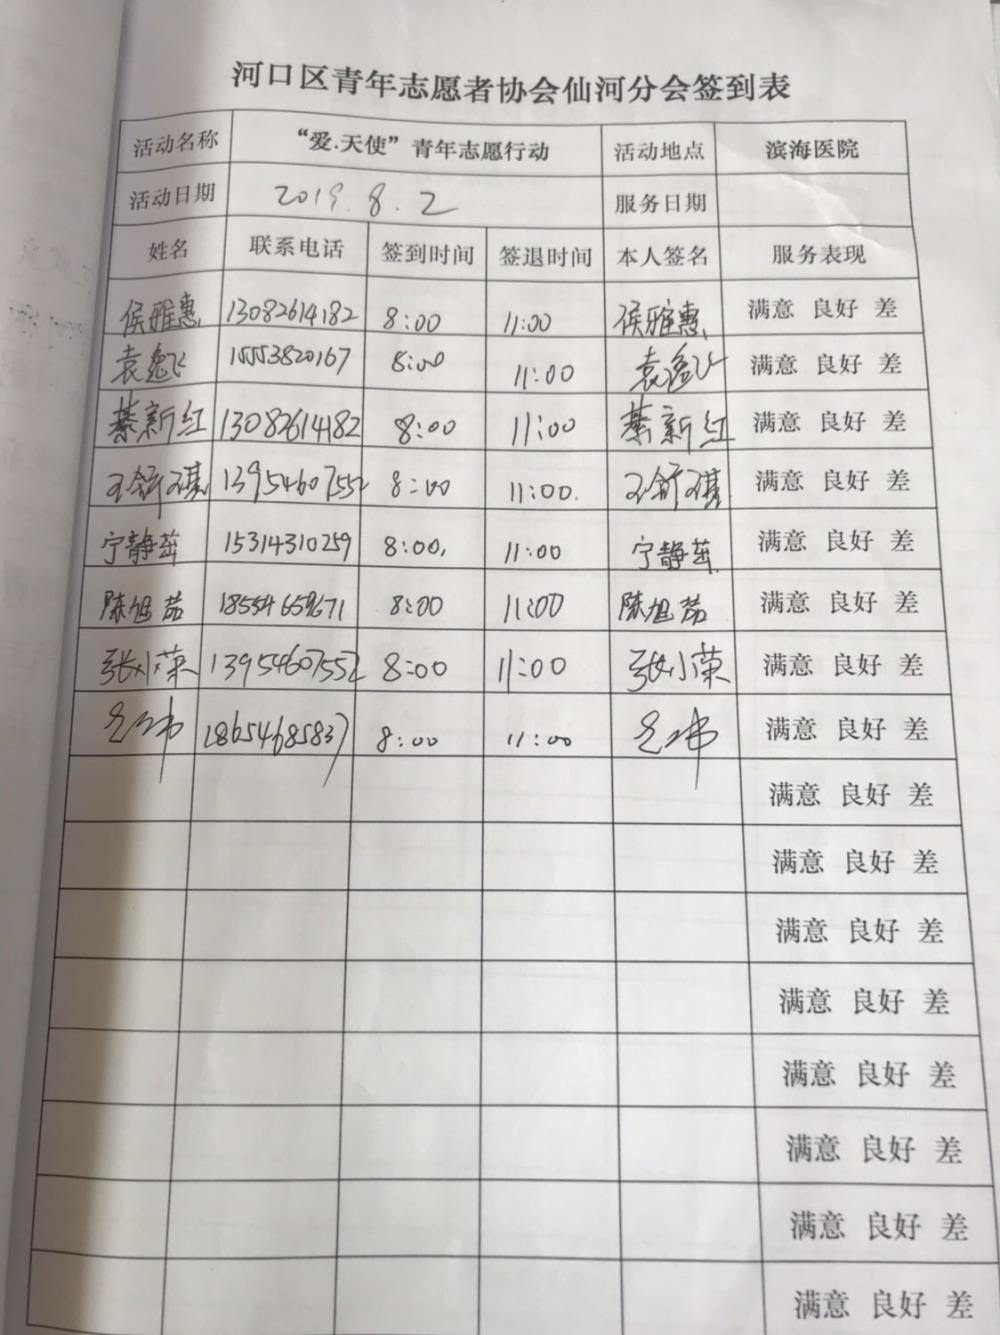 河口区青年志愿者协会仙河分会签到表
活动名称 “爱.天使”青年志愿行动 活动地点 滨海医院
活动日期 2019.8.2 服务日期
姓名 联系电话 签到时间 签退时间 本人签名 服务表现
侯雅惠 13082614182 8:00 11:00 侯雅惠 满意 良好 差
袁逸飞 15553820167 8:00 11:00 袁逸飞 满意 良好 差
綦新红 13082614182 8:00 11:00 綦新红 满意 良好 差
王舒琪 13954607552 8:00 11:00. 王舒琪 满意 良好 差
宁静茹 15314310259 8:00. 11:00 宁静茹 满意 良好 差
陈旭茹 18554659671 8:00 11:00 陈旭茹 满意 良好 差
张小荣 13954607552 8:00 11:00 张小荣 满意 良好 差
18654685837 8:00 11:00 满意 良好 差
满意 良好 差
满意 良好 差
满意 良好 差
满意 良好 差
满意 良好 差
满意 良好 差
满意 良好 差
满意 良好 差